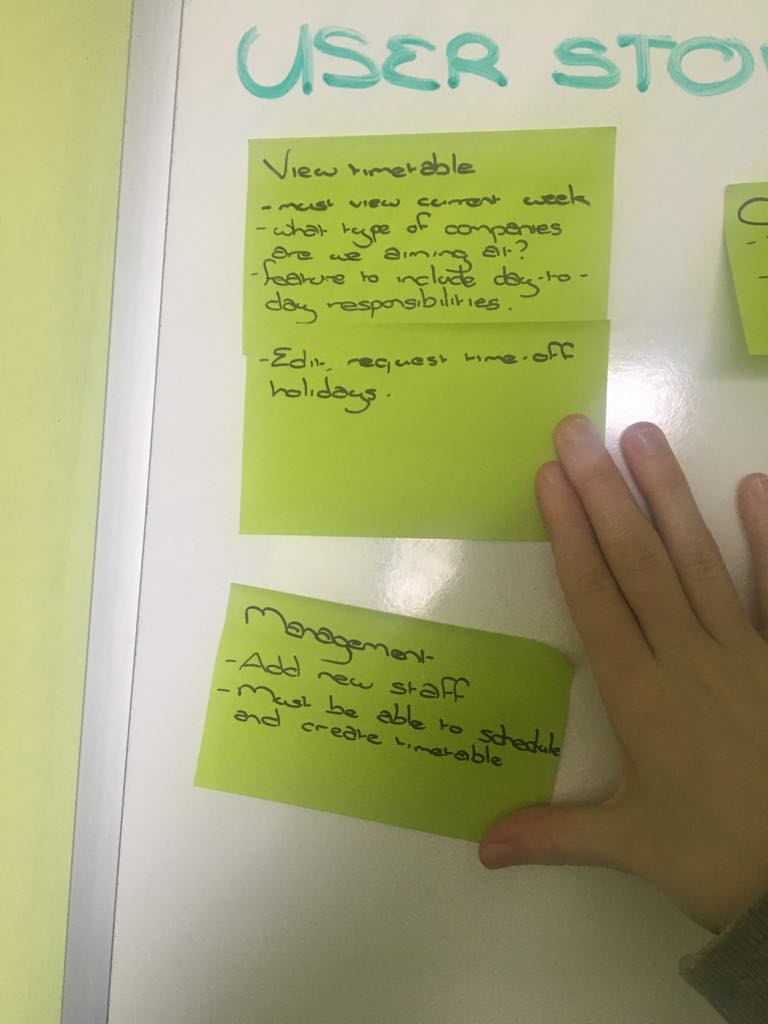 USER STO
View timetable
- must view current week
- what type of companies
are we aiming at?
- feature to include day-to-
day responsibilities.
- Edit, request time-off
holidays.
Management
- Add new staff
- Must be able to schedule
and create timetable